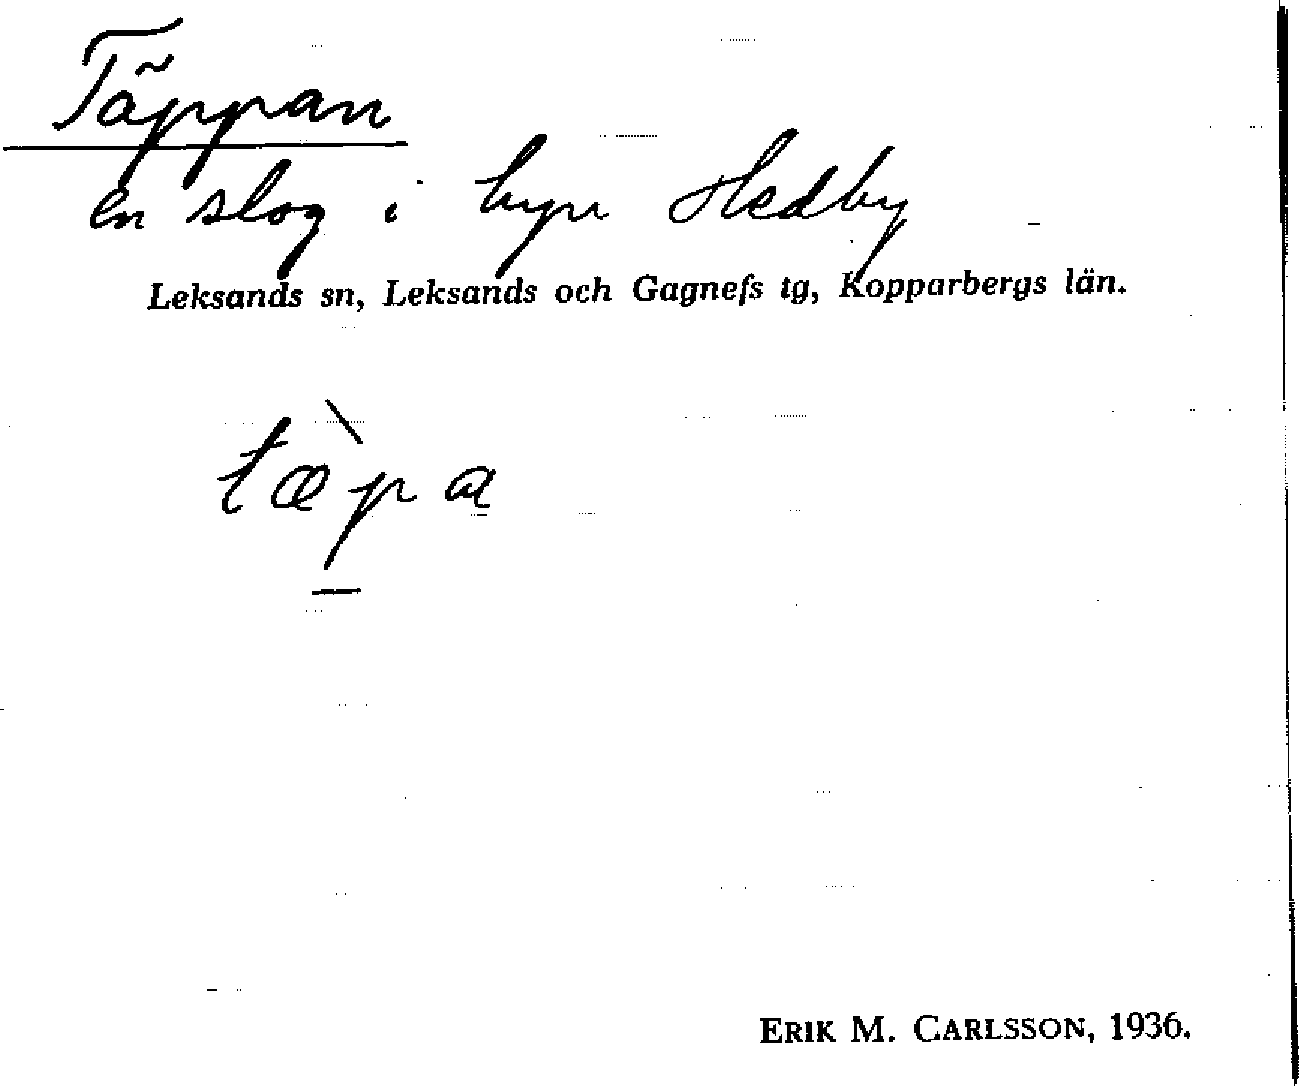 Täppan
en slog i byn Hedby
Leksands sn, Leksands och Gagnefs tg, Kopparbergs län.
tæ̀p̠a
ERIK M. CARLSSON, 1936.